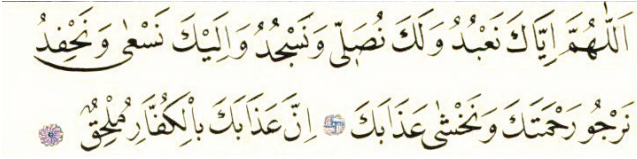 اَللّٰهُمَّ اِيَّاكَ نَعْبُدُ وَلَكَ نُصَلِّى وَنَسْجُدُ وَاِلَيْكَ نَسْعٰى وَنَحْفِدُ
نَرْجُو رَحْمَتَكَ وَنَخْشٰى عَذَابَكَ اِنَّ عَذَابَكَ بِالْكُفَّارِ مُلْحِقٌ